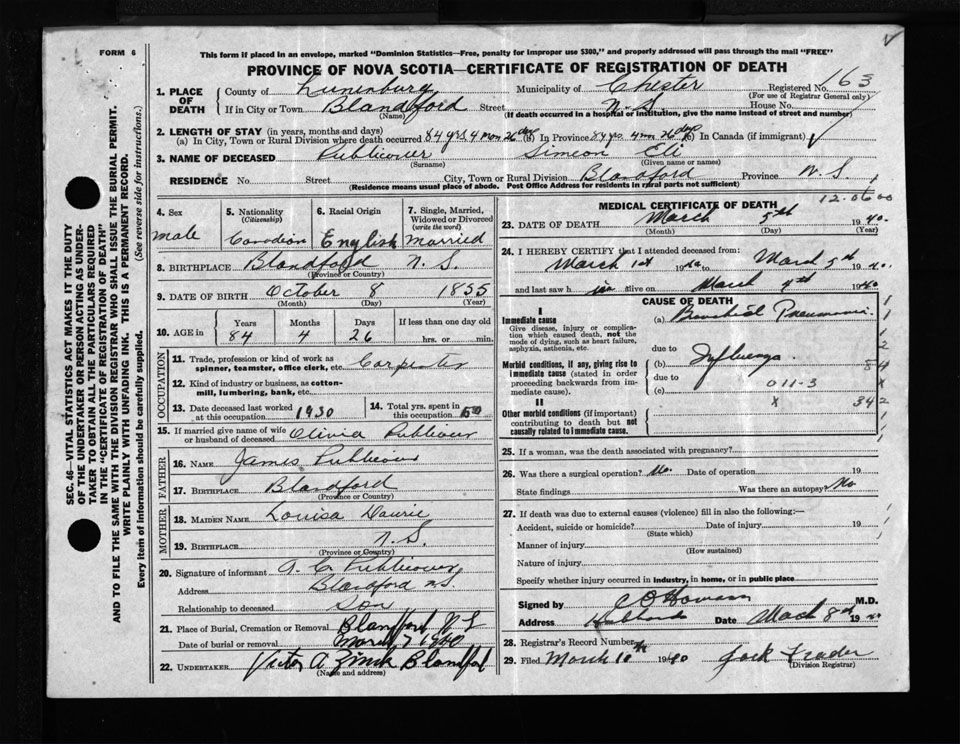 FORM 6
This form if placed in an envelope, marked "Dominion Statistics—Free, penalty for improper use $300," and properly addressed will pass through the mail "FREE"
PROVINCE OF NOVA SCOTIA—CERTIFICATE OF REGISTRATION OF DEATH
1. PLACE OF DEATH
County of Lunenburg Municipality of Chester Registered No. 163
(For use of Registrar General only)
If in City or Town Blandford Street N.S. House No.
(Name) (If death occurred in a hospital or institution, give the name instead of street and number)
2. LENGTH OF STAY (in years, months and days)
(a) In City, Town or Rural Division where death occurred 84 yrs 4 mon 26 days (b) In Province 84 yrs. 4 mon 26 days (c) In Canada (if immigrant)
3. NAME OF DECEASED Publicover Simeon Eli
(Surname) (Given name or names)
RESIDENCE No. Street City, Town or Rural Division Blandford Province N.S.
(Residence means usual place of abode. Post Office Address for residents in rural parts not sufficient)
4. Sex
male
5. Nationality
(Citizenship)
Canadian
6. Racial Origin
English
7. Single, Married, Widowed or Divorced
(write the word)
Married
8. BIRTHPLACE Blandford N.S.
(Province or Country)
9. DATE OF BIRTH October 8 1855
(Month) (Day) (Year)
10. AGE in
Years Months Days If less than one day old
84 4 26 hrs. or min.
OCCUPATION
11. Trade, profession or kind of work as spinner, teamster, office clerk, etc. Carpenter
12. Kind of industry or business, as cotton-mill, lumbering, bank, etc.
13. Date deceased last worked at this occupation 1930
14. Total yrs. spent in this occupation 50
15. If married give name of wife or husband of deceased Olivia Publicover
FATHER
16. NAME James Publicover
17. BIRTHPLACE Blandford
(Province or Country)
MOTHER
18. MAIDEN NAME Louisa
19. BIRTHPLACE N.S.
(Province or Country)
20. Signature of informant Publicover
Address Blandford N.S.
Relationship to deceased Son
21. Place of Burial, Cremation or Removal Blandford N S
Date of burial or removal March 7 1940
22. UNDERTAKER Victor A Zinck Blandford
(Name and address)
MEDICAL CERTIFICATE OF DEATH
12-06 00
23. DATE OF DEATH March 5th 1940.
(Month) (Day) (Year)
24. I HEREBY CERTIFY that I attended deceased from:
March 1st 1940 to March 5th 1940.
and last saw h im alive on March 1940
CAUSE OF DEATH
I
Immediate cause
Give disease, injury or complication which caused death, not the mode of dying, such as heart failure, asphyxia, asthenia, etc.
(a) Bronchial Pneumonia
due to
Morbid conditions, if any, giving rise to immediate cause (stated in order proceeding backwards from immediate cause).
(b) Influenza
due to
(c) 011-3
x 342
II
Other morbid conditions (if important) contributing to death but not causally related to immediate cause.
25. If a woman, was the death associated with pregnancy?
26. Was there a surgical operation? No. Date of operation 19
State findings Was there an autopsy? No
27. If death was due to external causes (violence) fill in also the following:—
Accident, suicide or homicide? Date of injury 19
(State which)
Manner of injury
(How sustained)
Nature of injury
Specify whether injury occurred in industry, in home, or in public place
Signed by M.D.
Address Hubbards Date March 8th 1940
28. Registrar's Record Number
29. Filed March 10th 1940 Jack
(Division Registrar)
SEC. 46—VITAL STATISTICS ACT MAKES IT THE DUTY OF THE UNDERTAKER OR PERSON ACTING AS UNDERTAKER TO OBTAIN ALL THE PARTICULARS REQUIRED IN THE "CERTIFICATE OF REGISTRATION OF DEATH" AND TO FILE THE SAME WITH THE DIVISION REGISTRAR WHO SHALL ISSUE THE BURIAL PERMIT.
WRITE PLAINLY WITH UNFADING INK. THIS IS A PERMANENT RECORD.
Every item of information should be carefully supplied. (See reverse side for instructions.)